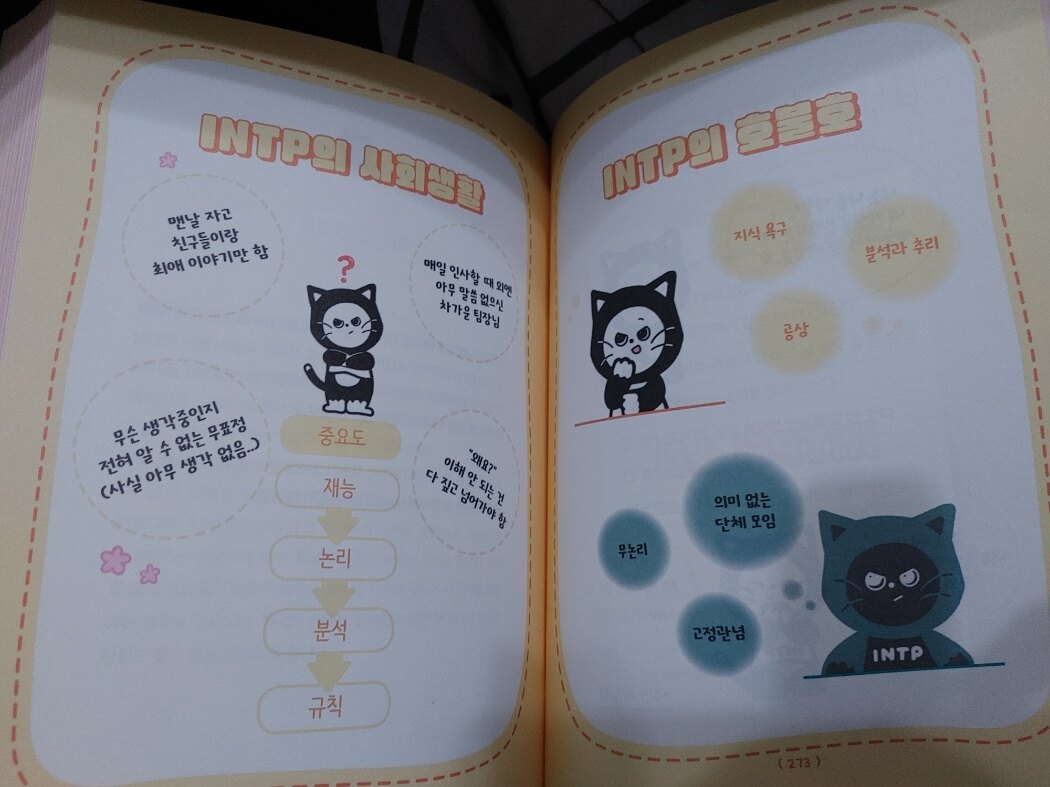 INTP의 사회생활
맨날 자고
친구들이랑
최애 이야기만 함
?
매일 인사할 때 외엔
아무 말씀 없으신
차가운 팀장님
무슨 생각중인지
전혀 알 수 없는 무표정
(사실 아무 생각 없음..)
"왜요?"
이해 안 되는 건
다 짚고 넘어가야 함
중요도
재능
논리
분석
규칙
INTP의 호불호
지식 욕구
분석과 추리
공상
의미 없는
단체 모임
무논리
고정관념
INTP
( 273 )